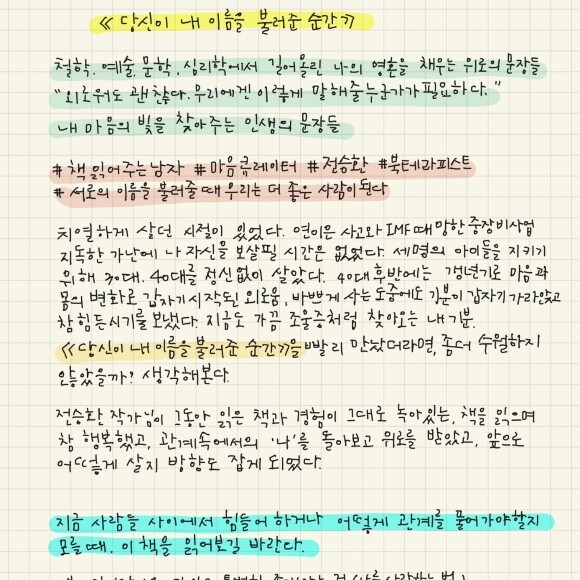 《당신이 내 이름을 불러준 순간》
철학. 예술. 문학. 심리학에서 길어올린 나의 영혼을 채우는 위로의 문장들
"외로워도 괜찮다. 우리에겐 이렇게 말해줄누군가가 필요하다."
내 마음의 빛을 찾아주는 인생의 문장들
# 책 읽어주는남자 #마음큐레이터 #전승환 #북테라피스트
# 서로의 이름을 불러줄때 우리는 더 좋은 사람이 된다
치열하게 살던 시절이 있었다. 연이은 사고와 IMF때 망한 중장비사업
지독한 가난에 나 자신을 보살필 시간은 없었다. 세명의 아이들을 지키기
위해 30대. 40대를 정신없이 살았다. 40대 후반에는 갱년기로 마음과
몸의 변화로 갑자기 시작된 외로움, 바쁘게 사는 도중에도 기분이 갑자기 가라앉고
참 힘든시기를 보냈다. 지금도 가끔 조울증처럼 찾아오는 내 기분.
《당신이 내 이름을 불러준 순간》을 빨리 만났더라면, 좀더 수월하지
않았을까? 생각해본다.
전승환 작가님이 그동안 읽은 책과 경험이 그대로 녹아있는, 책을 읽으며
참 행복했고, 관계속에서의 '나'를 돌아보고 위로를 받았고, 앞으로
어떻게 살지 방향도 잡게 되였다.
지금 사람들 사이에서 힘들어 하거나 어떻게 관계를 풀어가야할지
모를때. 이 책을 읽어보길 바란다.